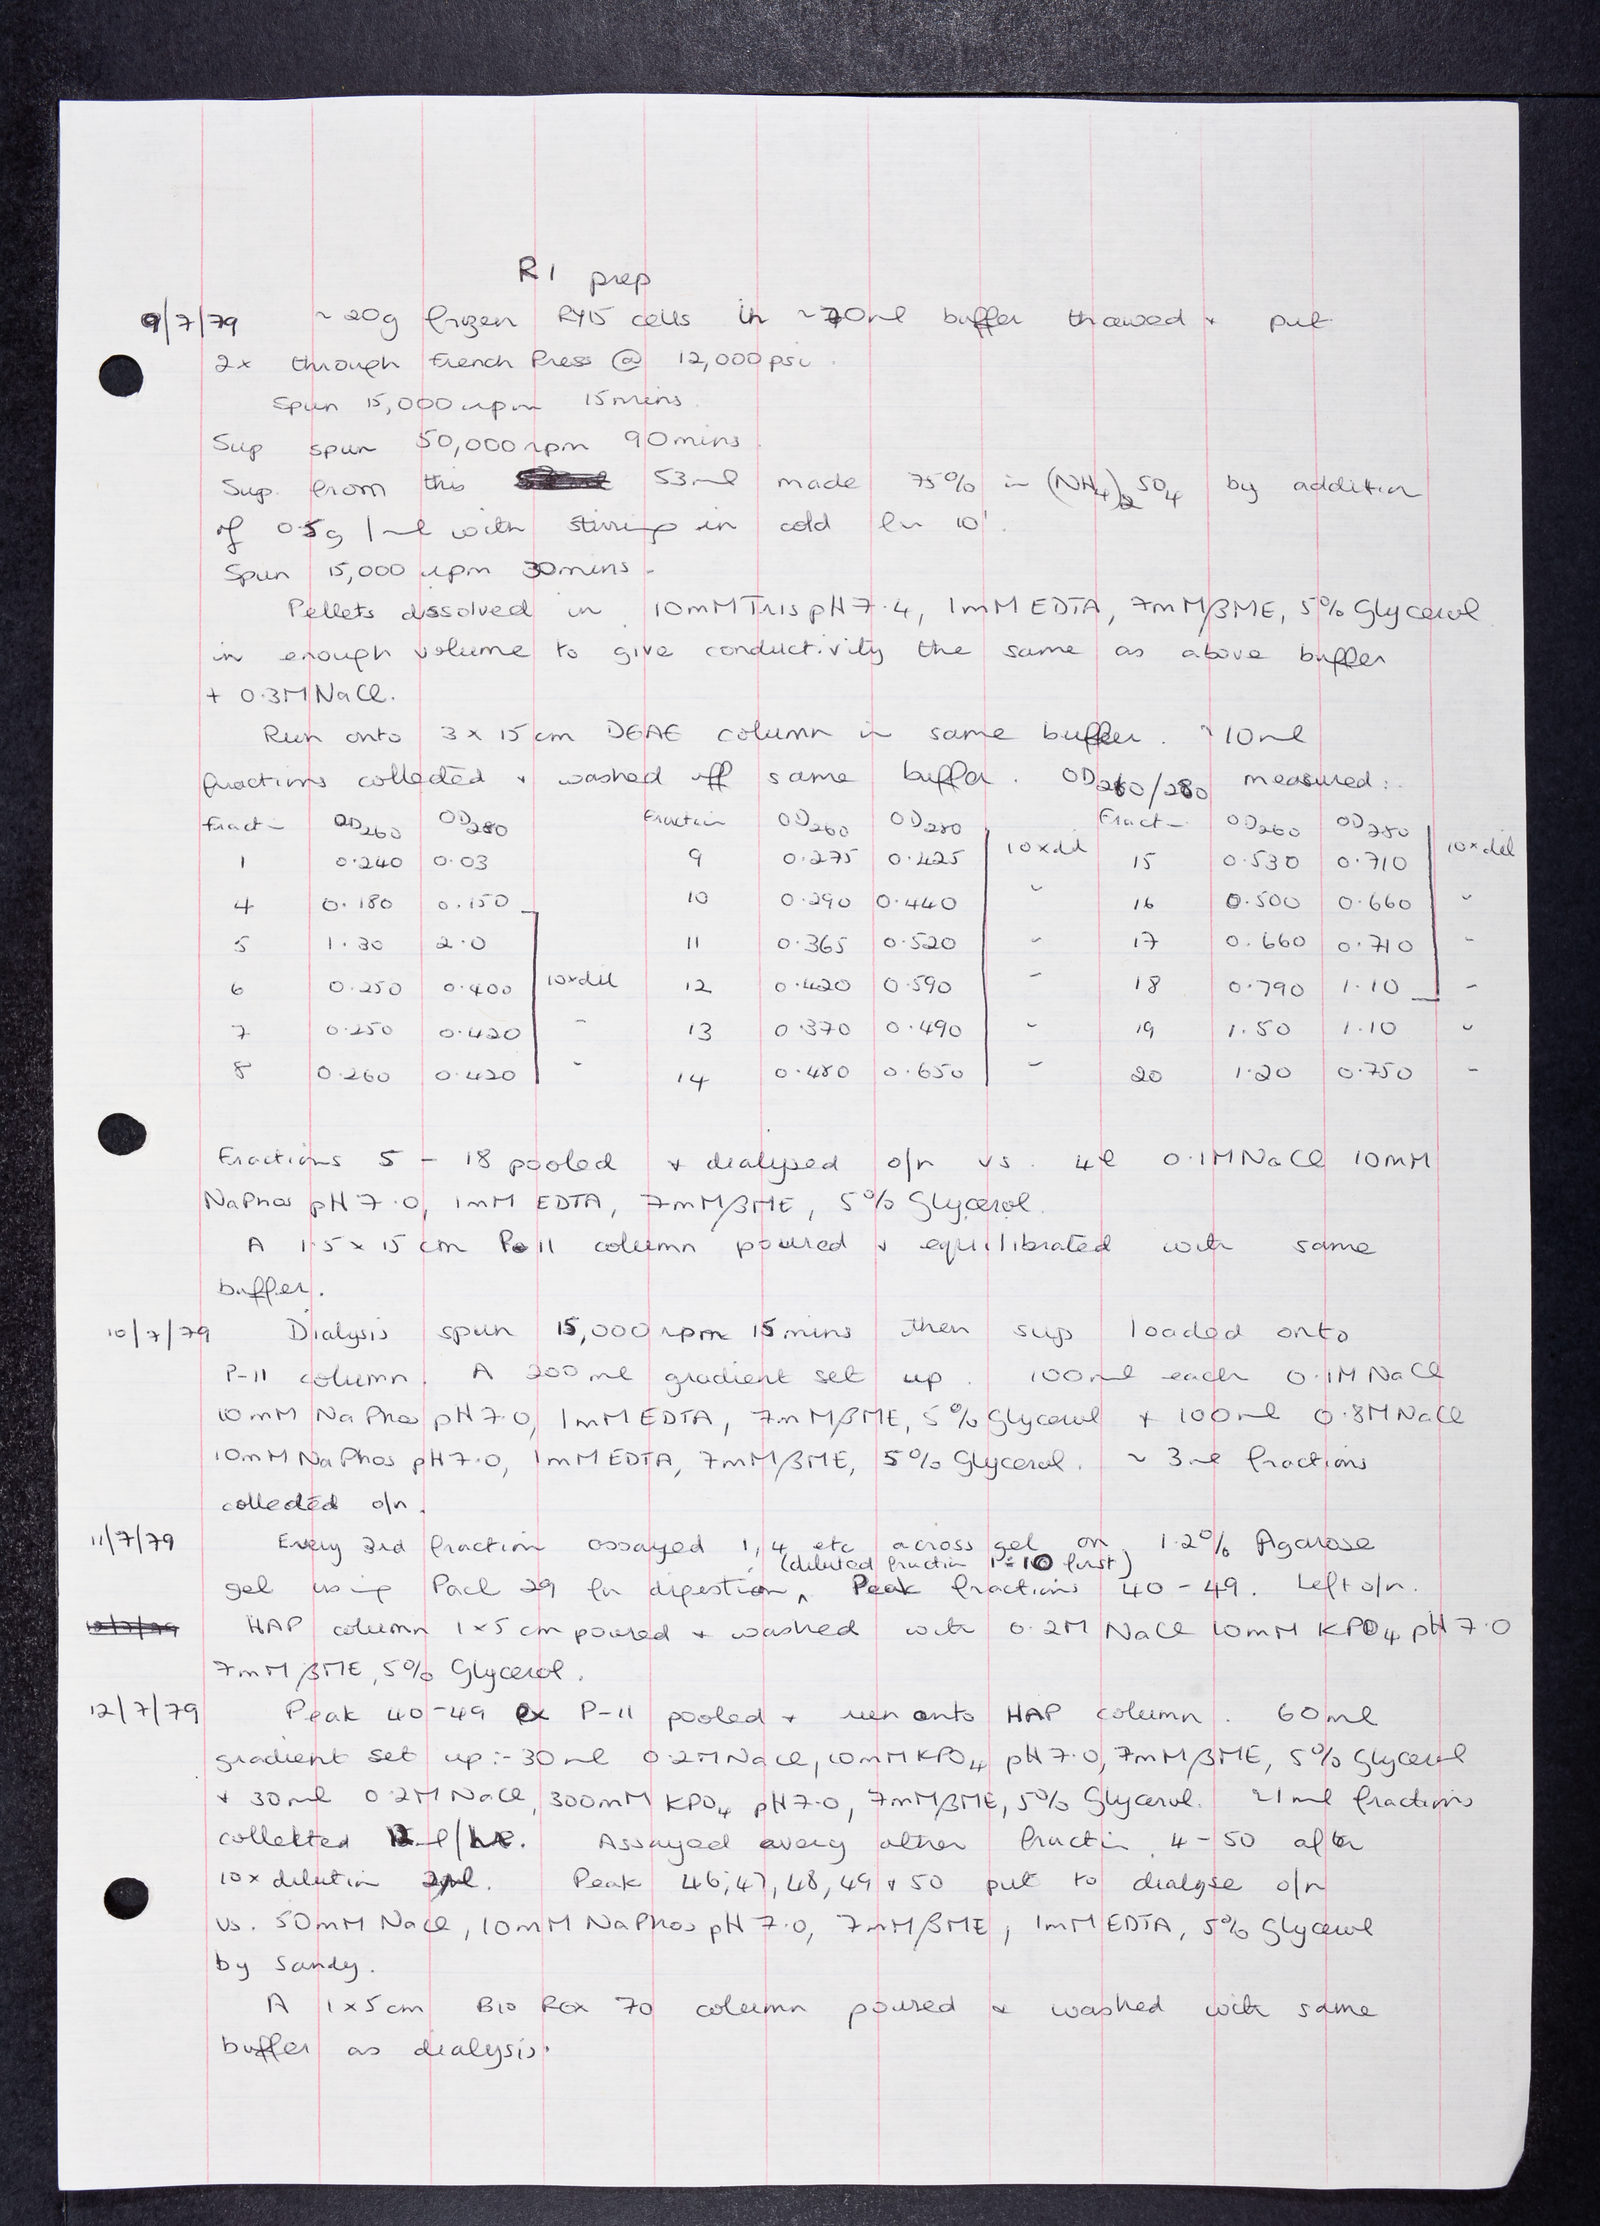 R1 prep
9/7/79 ~20g frozen RY15 cells in ~70ml buffer thawed + put
2x through French Press @ 12,000psi.
Spun 15,000rpm 15mins.
Sup spun 50,000rpm 90mins.
Sup. from this 53ml made 75% in (NH4)2SO4 by addition
of 0.5g/ml with stirring in cold for 10'.
Spun 15,000 rpm 30mins.
Pellets dissolved in 10mM Tris pH 7.4, 1mM EDTA, 7mM βME, 5% Glycerol
in enough volume to give conductivity the same as above buffer
+ 0.3M NaCl.
Run onto 3 x 15cm DEAE column in same buffer. ~10ml
fractions collected + washed off same buffer. OD260/280 measured:
Fraction OD260 OD280 Fraction OD260 OD280 Fraction OD260 OD280
1 0.240 0.03 9 0.275 0.425 10xdil 15 0.530 0.710 10xdil
4 0.180 0.150 10 0.290 0.440 " 16 0.500 0.660 "
5 1.30 2.0 11 0.365 0.520 " 17 0.660 0.710 "
6 0.250 0.400 10xdil 12 0.420 0.590 " 18 0.790 1.10 "
7 0.250 0.420 " 13 0.370 0.490 " 19 1.50 1.10 "
8 0.260 0.420 " 14 0.480 0.650 " 20 1.20 0.750 "
Fractions 5 - 18 pooled + dialysed o/n vs. 4l 0.1M NaCl 10mM
NaPhos pH 7.0, 1mM EDTA, 7mM βME, 5% Glycerol.
A 1.5 x 15cm P-11 column poured + equilibrated with same
buffer.
10/7/79 Dialysis spun 15,000rpm 15mins then sup loaded onto
P-11 column. A 200ml gradient set up. 100ml each 0.1M NaCl
10mM NaPhos pH 7.0, 1mM EDTA, 7mM βME, 5% Glycerol + 100ml 0.8M NaCl
10mM NaPhos pH 7.0, 1mM EDTA, 7mM βME, 5% Glycerol. ~ 3ml fractions
collected o/n.
11/7/79 Every 3rd fraction assayed 1, 4 etc across gel on 1.2% Agarose
(diluted fraction 1:10 first)
gel using Pacl 29 for digestion. Peak fractions 40 - 49. Left o/n.
12/7/79 HAP column 1 x 5cm poured + washed with 0.2M NaCl 10mM KPO4 pH 7.0
7mM βME, 5% Glycerol.
12/7/79 Peak 40-49 ex P-11 pooled + run onto HAP column. 60ml
gradient set up:- 30ml 0.2M NaCl, 10mM KPO4 pH 7.0, 7mM βME, 5% Glycerol
+ 30ml 0.2M NaCl, 300mM KPO4 pH 7.0, 7mM βME, 5% Glycerol. ~1ml fractions
collected 12ml/hr. Assayed every other fraction 4 - 50 after
10x dilution 2μl. Peak 46, 47, 48, 49 + 50 put to dialyse o/n
vs. 50mM NaCl, 10mM NaPhos pH 7.0, 7mM βME, 1mM EDTA, 5% Glycerol
by Sandy.
A 1 x 5cm Bio Rex 70 column poured + washed with same
buffer as dialysis.